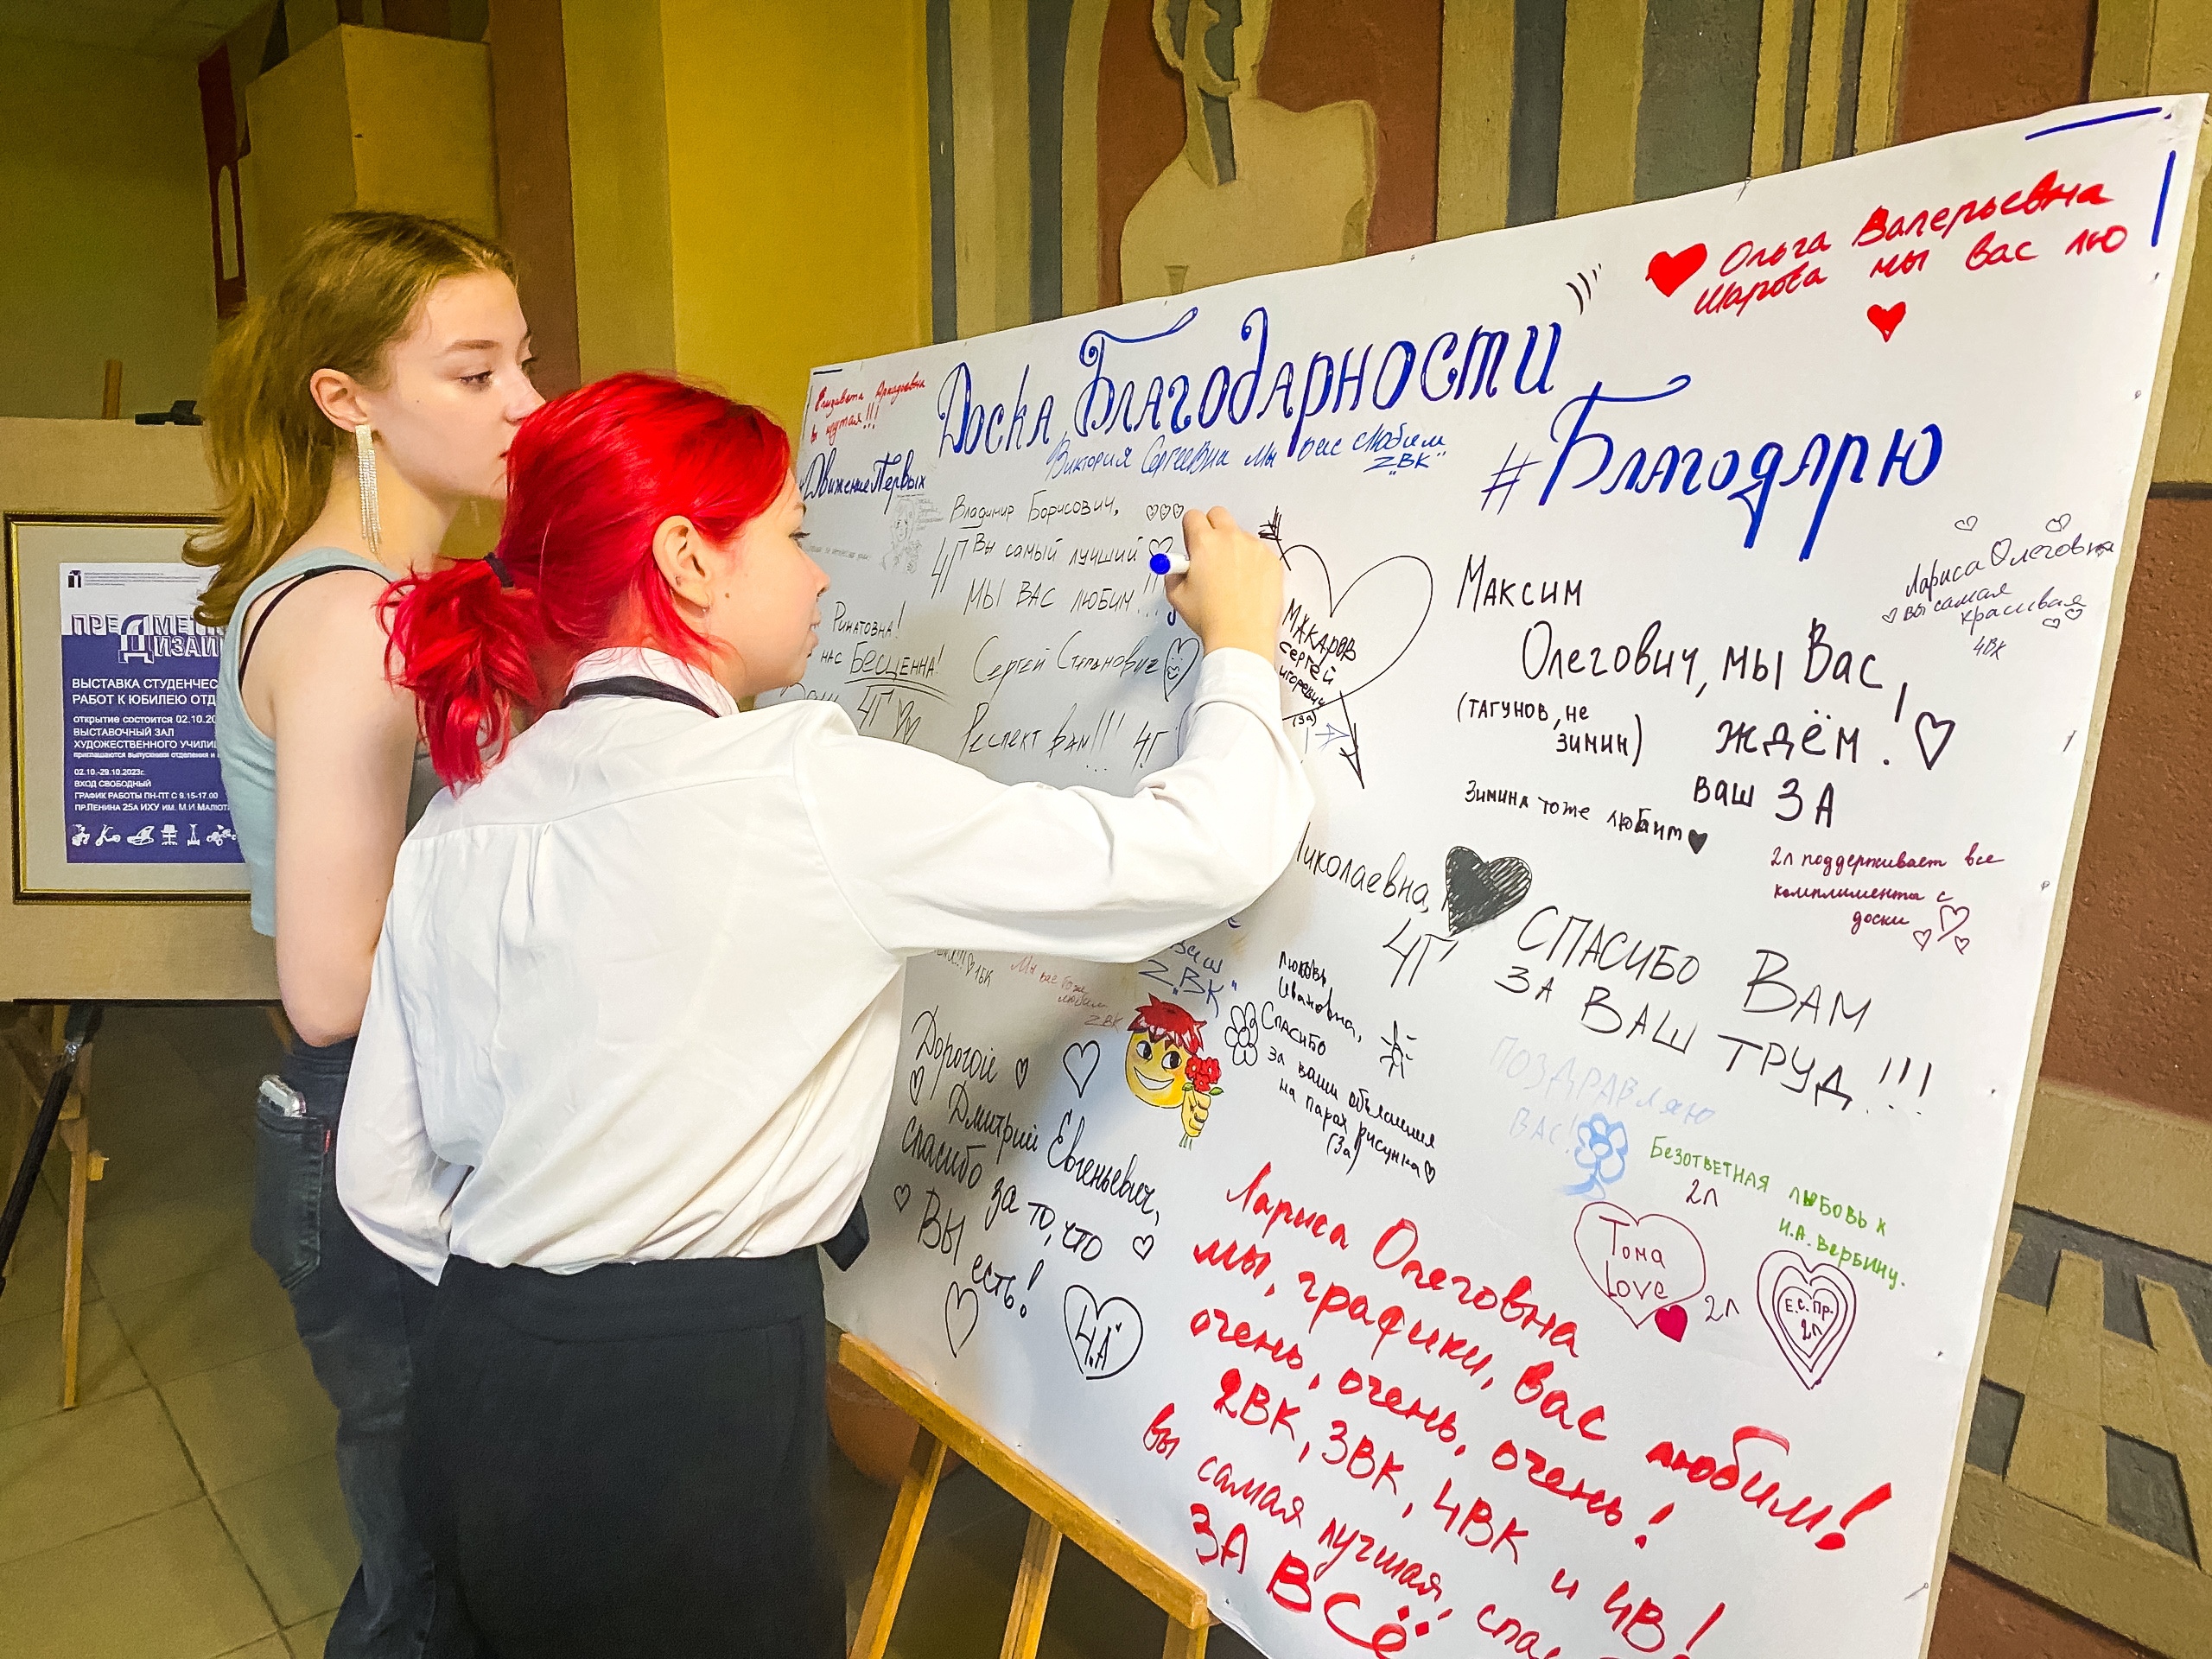 ПРЕДМЕТН
ДИЗАЙН
ВЫСТАВКА СТУДЕНЧЕС
РАБОТ К ЮБИЛЕЮ ОТД
открытие состоится 02.10.20
ВЫСТАВОЧНЫЙ ЗАЛ
ХУДОЖЕСТВЕННОГО УЧИЛИ
приглашаются выпускники отделения и
02.10.-29.10.2023г.
ВХОД СВОБОДНЫЙ
ГРАФИК РАБОТЫ ПН-ПТ С 9.15-17.00
ПР.ЛЕНИНА 25А ИХУ ИМ. М.И.МАЛЮТ
Елизавета Аркадьевна
вы крутая!!!
Доска Благодарности
Ольга Валерьевна
Шарова мы вас лю
Виктория Сергеевна мы вас любим
"2ВК"
Движение Первых
#Благодарю
Владимир Борисович,
4Г Вы самый лучший
МЫ ВАС ЛЮБИМ...
Ринатовна!
нас Бесценна!
4Г
Сергей Степанович
Респект вам!!! 4Г
МАКАРОВ
Сергей
Игоревич
(3а)
Максим
Олегович, мы Вас,
(ТАГУНОВ, не
ЗИМИН)
ждём!
ваш 3А
Зимина тоже любит
Лариса Олеговна
вы самая
красивая
4ВК
2л поддерживает все
комплименты с
доски
Николаевна,
4Г
СПАСИБО ВАМ
ЗА ВАШ ТРУД!!!
15К
Мы вас тоже
любим
2ВК
Ваш
"2ВК"
Дорогой
Дмитрий Евгеньевич,
спасибо за то, что
ВЫ есть!
4"А"
Любовь
Ивановна,
Спасибо
за ваши объяснения
на парах рисунка
(3а)
ПОЗДРАВляю
ВАС!
Безответная любовь к
И.А. Вербину.
2л
Тома
Love
2л
Е.С. Пр.
2л
Лариса Олеговна
мы, графики, вас любим!
очень, очень, очень!
2ВК, 3ВК, 4ВК и 4В!
вы самая лучшая, спас
ЗА ВСЁ